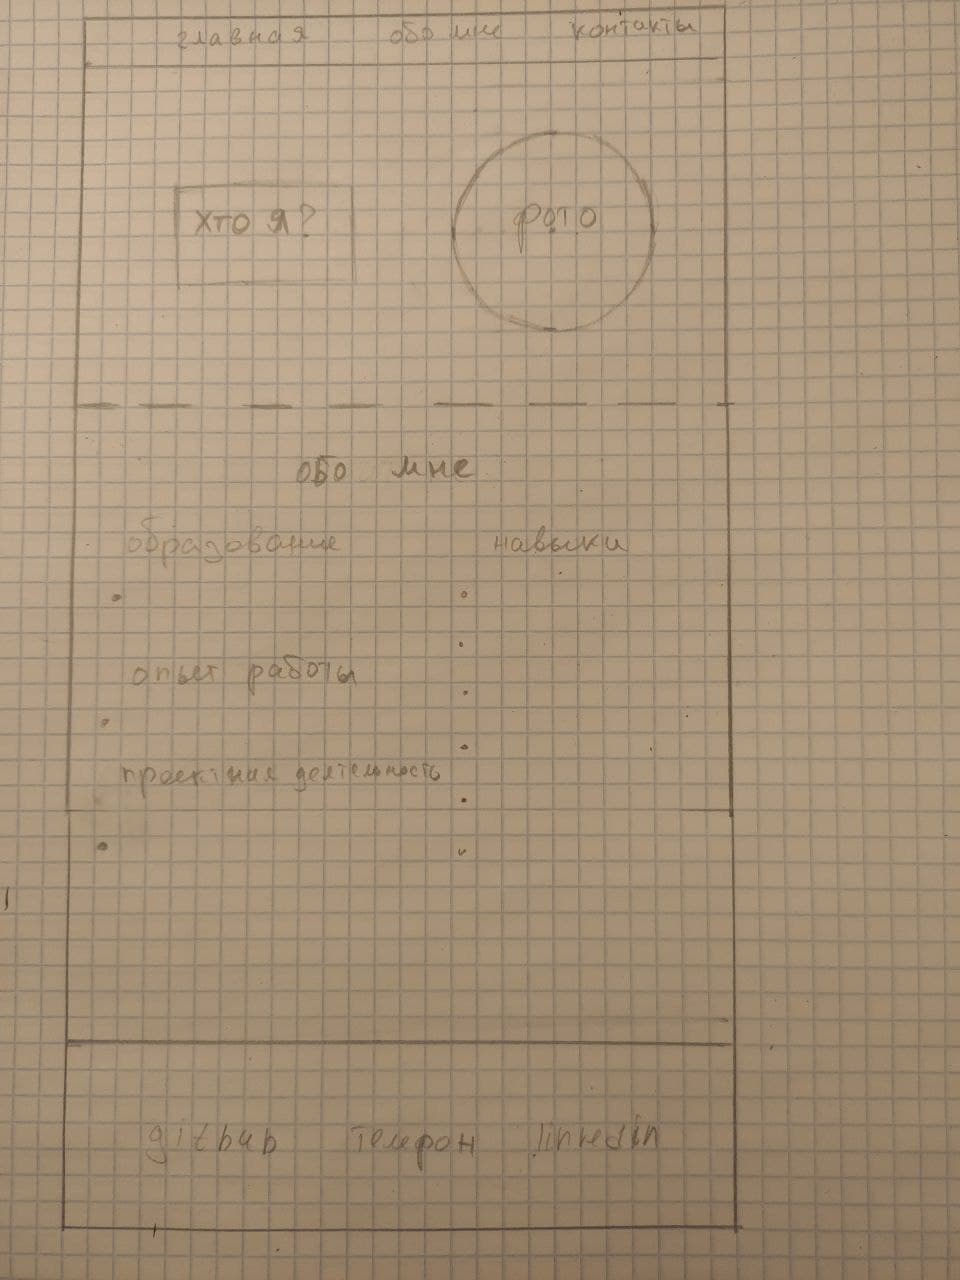 главная обо мне контакты
хто я? фото
обо мне
образование навыки
опыт работы
проектная деятельность
github телефон linkedin